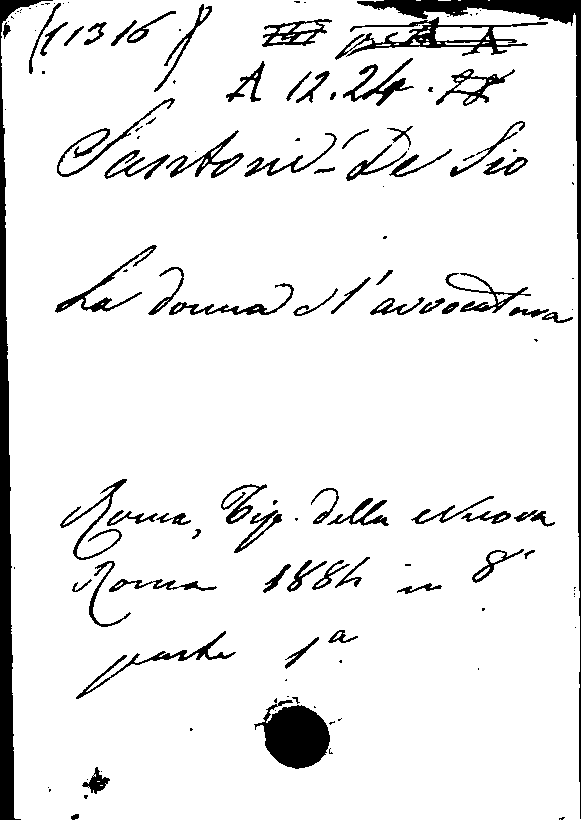 (11316)
A 12.24.
Santoni-De Sio
La donna e l'avvocatura
Roma, Tip. della Nuova
Roma 1884 in 8°
parte 1ª